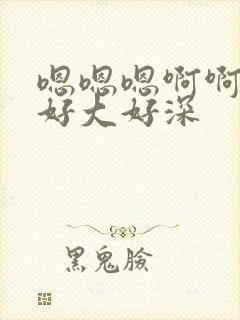 嗯嗯嗯啊啊
好大好深
黑鬼臉